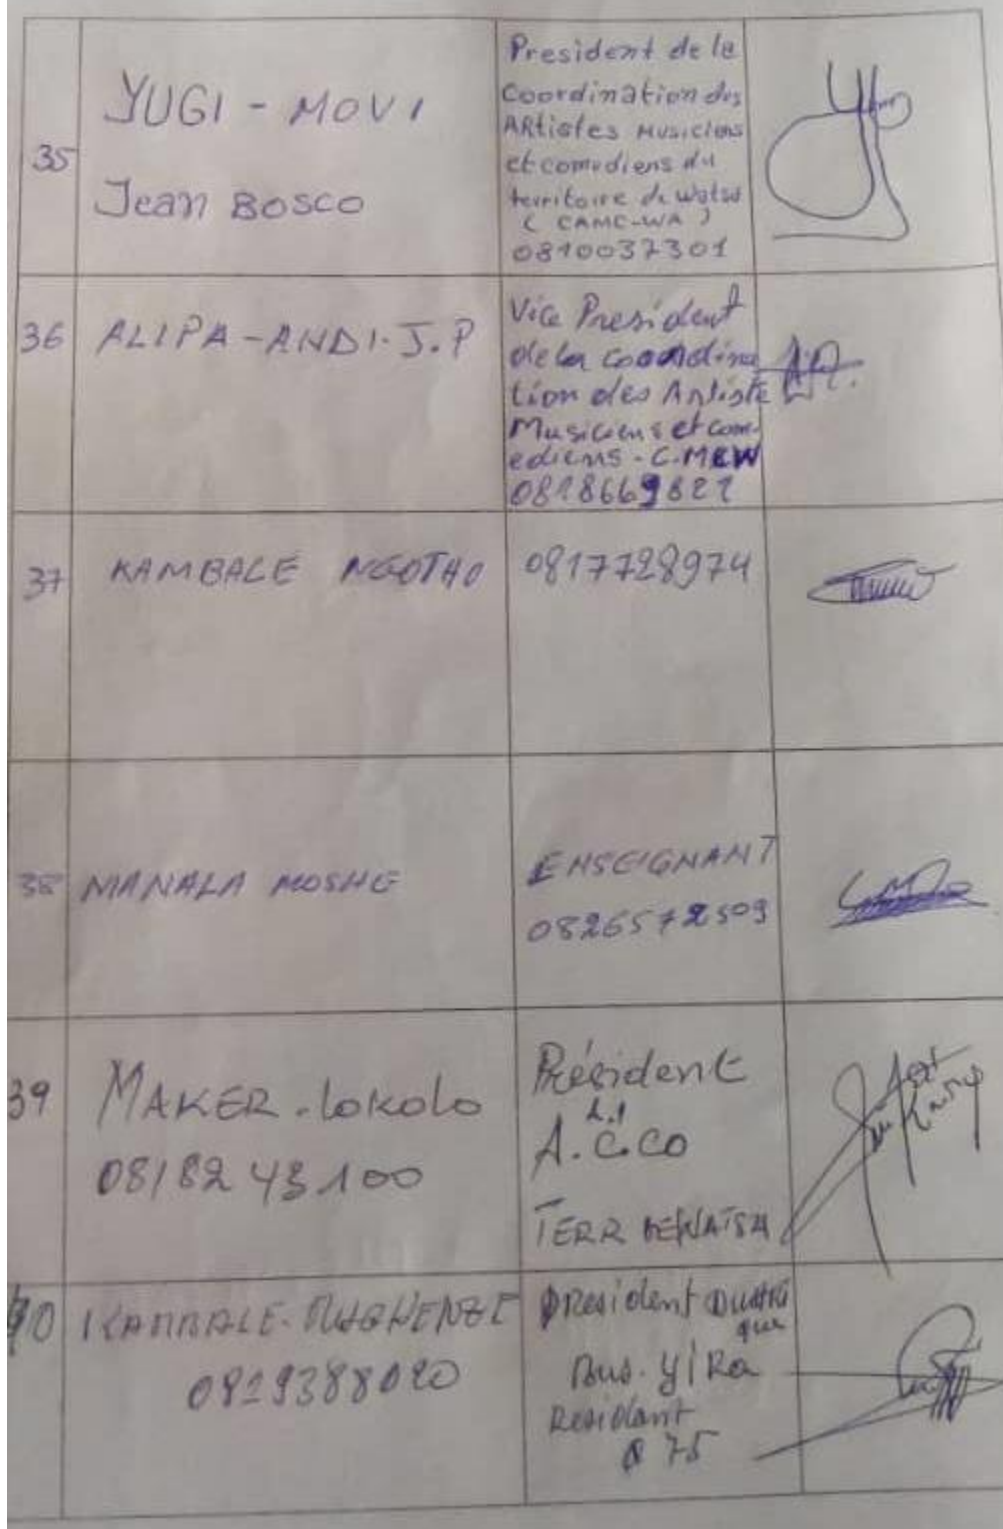 35
YUGI - MOVI
Jean BOSCO
President de la
Coordination des
ARtistes Musiciens
et comediens du
territoire de Watsa
( CAMC-WA )
0810037301
36
ALIPA-ANDI. J.P
Vice President
de la coordina
tion des Artiste
Musiciens et com-
ediens - C.MCW
0818669821
37
KAMBALE NGOTHO
0817728974
38
MANALA MOSHE
ENSEIGNANT
0826572509
39
MAKER. lokolo
0818243100
Président
A.C.CO
TERR DE WATSA
40
KAMBALE.
0829388020
President
que
YIRA
Residant
75